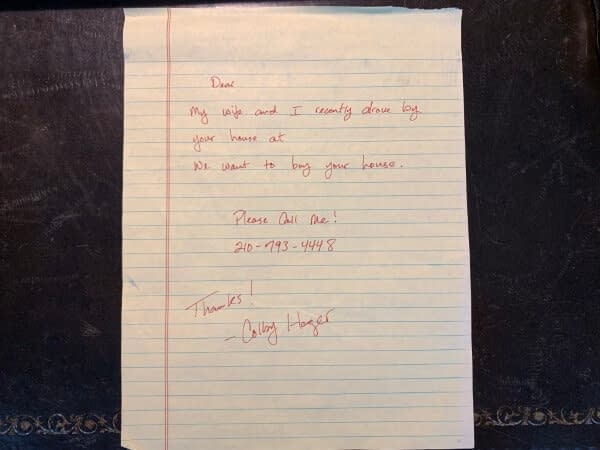 Dear
My wife and I recently drove by
your house at
We want to buy your house.
Please Call Me!
210-793-4448
Thanks!
- Colby Hager